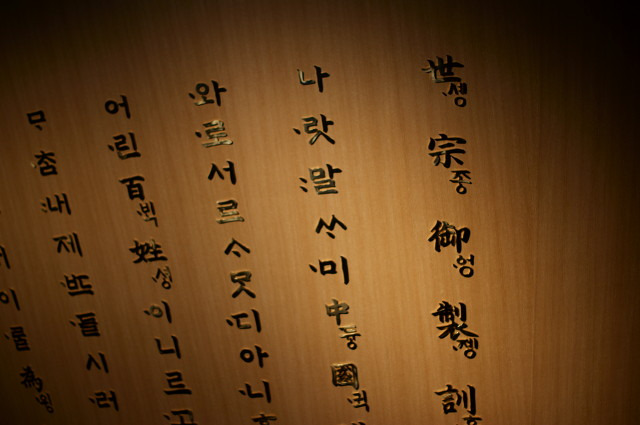 世솅宗종御엉製졩訓
나·랏:말ᄊᆞ·미中듕國귁
·와·로서르ᄉᆞᄆᆞᆺ·디아니
어·린百·ᄇᆡᆨ姓·셩·이니르
ᄆᆞ·ᄎᆞᆷ:내제·ᄠᅳ·들시·러
이·ᄅᆞᆯ為·윙